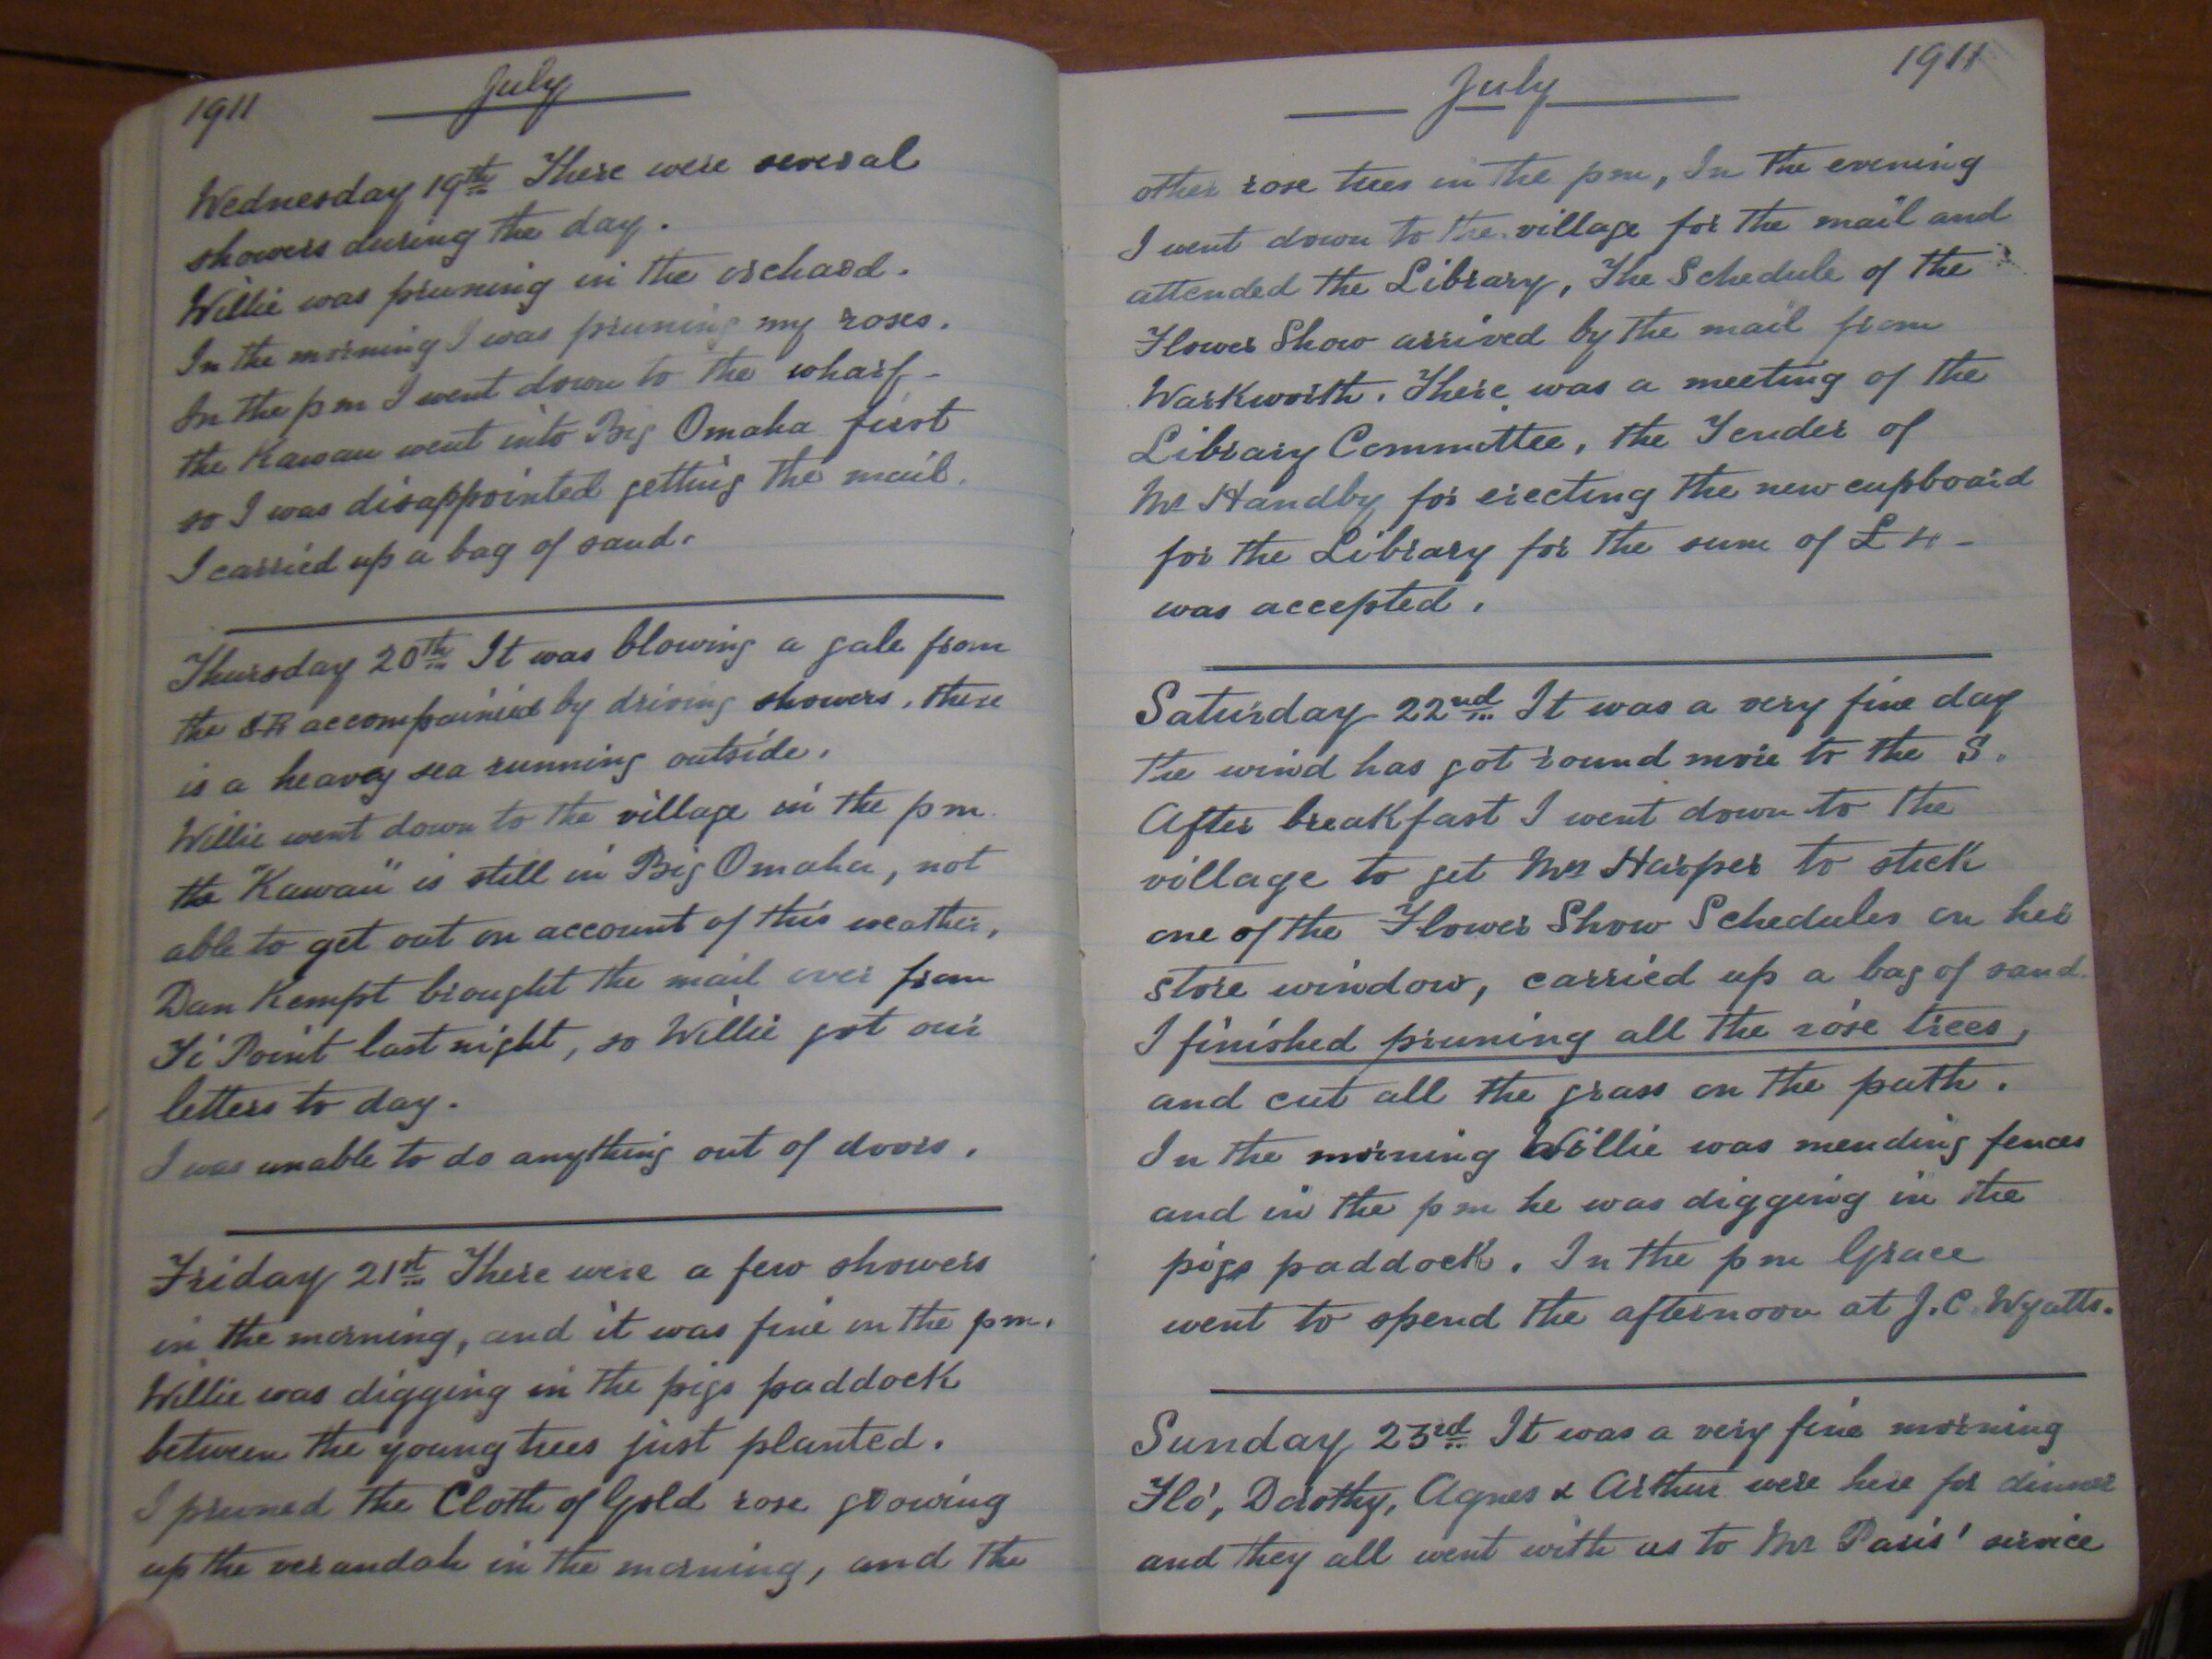 1911 July
Wednesday 19th There were several
showers during the day.
Willie was pruning in the orchard.
In the morning I was pruning my roses.
In the pm I went down to the wharf -
the Kawau went into Big Omaha first
so I was disappointed getting the mail.
I carried up a bag of sand.
Thursday 20th It was blowing a gale from
the accompainied by driving showers, there
is a heavey sea running outside.
Willie went down to the village in the pm.
the "Kawau" is still in Big Omaha, not
able to get out on account of this weather,
Dan Kempt brought the mail over from
Ti Point last night, so Willie got our
letters to day.
I was unable to do anything out of doors.
Friday 21st There were a few showers
in the morning, and it was fine in the pm.
Willie was digging in the pigs paddock
between the young trees just planted.
I pruned the Cloth of Gold rose growing
up the verandah in the morning, and the
July 1911
other rose trees in the pm, In the evening
I went down to the village for the mail and
attended the Library, The Schedule of the
Flower Show arrived by the mail from
Warkworth. There was a meeting of the
Library Committee, the Tender of
Mr Handby for erecting the new cupboard
for the Library for the sum of £4 -
was accepted.
Saturday 22nd It was a very fine day
the wind has got round more to the S.
After breakfast I went down to the
village to get Mrs Harper to stick
one of the Flower Show Schedules on her
store window, carried up a bag of sand.
I finished pruning all the rose trees,
and cut all the grass on the path.
In the morning Willie was mending fences
and in the pm he was digging in the
pigs paddock. In the pm Grace
went to spend the afternoon at J.C. Wyatts.
Sunday 23rd It was a very fine morning
Flo', Dorothy, Agnes & Arthur were here for dinner
and they all went with us to Mr Paris' service